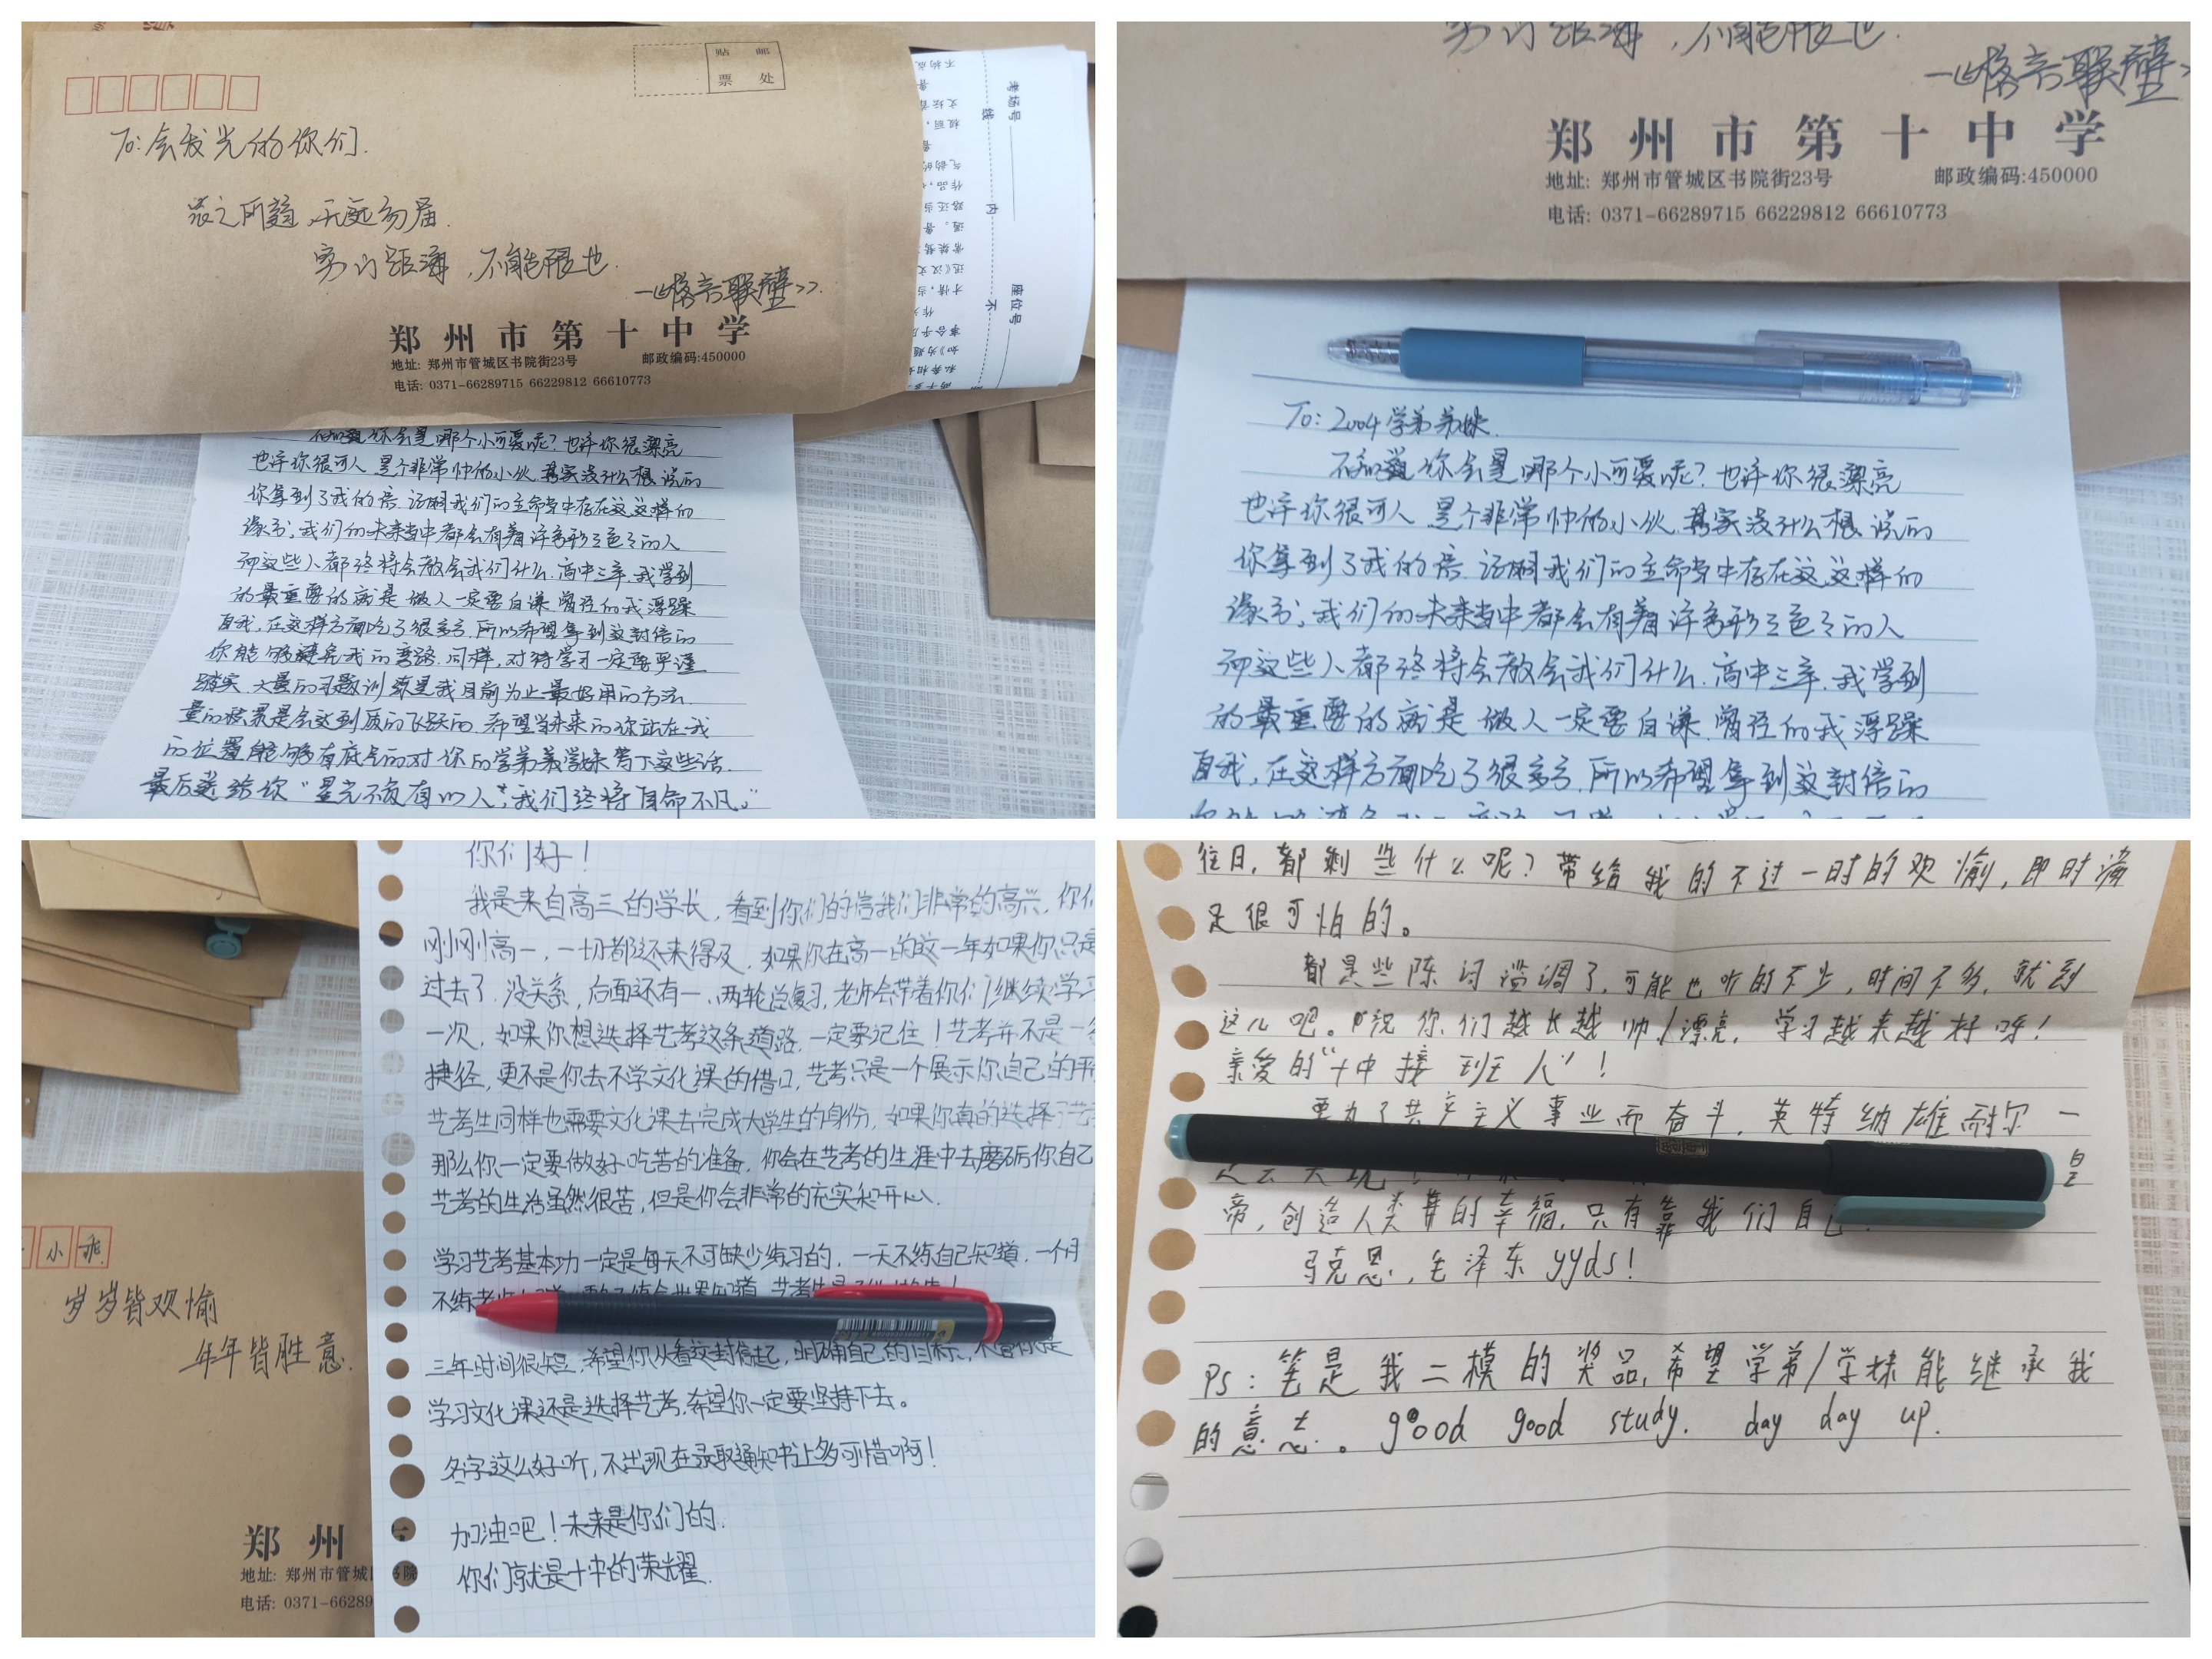 贴 邮
票 处
To:会发光的你们.
志之所趋,无远勿届.
穷山距海,不能限也.
—《格言联璧》.
郑州市第十中学
地址: 郑州市管城区书院街23号 邮政编码:450000
电话: 0371-66289715 66229812 66610773
考场号
座位号
线
内
不
不知道你会是哪个小可爱呢?也许你很漂亮
也许你很可人 是个非常帅的小伙.
你拿到了我的信.证明我们的生命当中存在这这样的
缘分,我们的未来当中都会有着许多形形色色的人
而这些人都终将会教会我们什么.高中三年.我学到
的最重要的就是做人一定要自谦.曾经的我浮躁
自我,在这样方面吃了很多亏.所以希望拿到这封信的
你能够避免我的弯路.同样,对待学习一定要严谨
踏实.大量的习题训练是我目前为止最好用的方法.
量的积累是会达到质的飞跃的.希望当未来的你站在我
的位置能够有底气的对你的学弟学妹写下这些话.
最后送给你“星光不负有心人,我们终将自命不凡。”
穷山距海,不能限也.
—《格言联璧》
郑州市第十中学
地址: 郑州市管城区书院街23号 邮政编码:450000
电话: 0371-66289715 66229812 66610773
To: 2004学弟学妹.
不知道你会是哪个小可爱呢?也许你很漂亮
也许你很可人 是个非常帅的小伙.
你拿到了我的信.证明我们的生命当中存在这这样的
缘分,我们的未来当中都会有着许多形形色色的人
而这些人都终将会教会我们什么.高中三年.我学到
的最重要的就是做人一定要自谦.曾经的我浮躁
自我,在这样方面吃了很多亏.所以希望拿到这封信的
小乖.
岁岁皆欢愉
年年皆胜意.
郑州
地址: 郑州市管城 书院
电话: 0371-66289
你们好!
我是来自高三的学长,看到你们的信我们非常的高兴,你们
刚刚高一,一切都还来得及,如果你在高一的这一年如果你只是
过去了,没关系,后面还有一、两轮总复习,老师会带着你们继续学习
一次,如果你想选择艺考这条道路,一定要记住!艺考并不是一条
捷径,更不是你去不学文化课的借口,艺考只是一个展示你自己的平
艺考生同样也需要文化课去完成大学生的身份,如果你真的选择了艺
那么你一定要做好吃苦的准备,你会在艺考的生涯中去磨砺你自己
艺考的生活虽然很苦,但是你会非常的充实和开心.
学习艺考基本功一定是每天不可缺少练习的,一天不练自己知道,一个月
不练老师知道
三年时间很短,希望你从看这封信起,明确自己的目标,不管你是
学习文化课还是选择艺考,希望你一定要坚持下去。
名字这么好听,不出现在录取通知书上多可惜啊!
加油吧!未来是你们的.
你们就是十中的荣耀.
往日,都剩些什么呢?带给我的不过一时的欢愉,即时满
足很可怕的。
都是些陈词滥调了,可能也听的不少,时间不多,就到
这儿吧。祝你们越长越帅/漂亮,学习越来越好呀!
亲爱的“十中接班人”!
要为了共产主义事业而奋斗,英特纳雄耐尔一
皇
帝,创造人类的幸福,只有靠我们自己
马克思,毛泽东yyds!
Ps:笔是我二模的奖品,希望学弟/学妹能继承我
的意志。good good study. day day up.